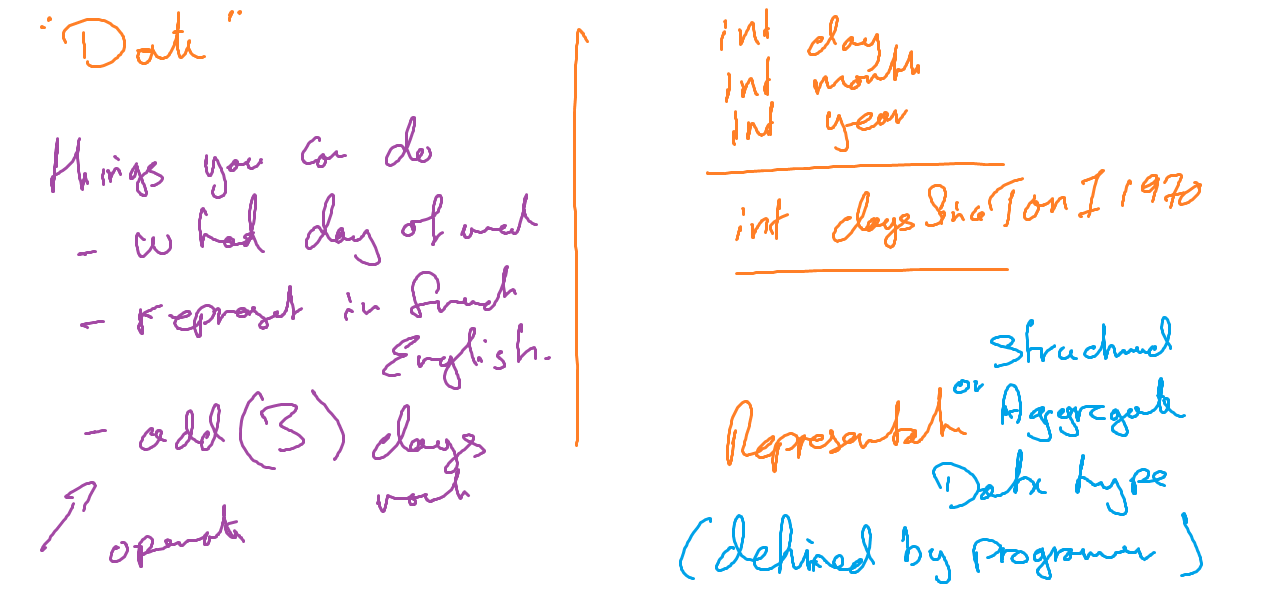 "Date"
things you can do
- what day of week
- represent in French
English.
- add (3) days
operate
int day
int month
int year
int days Since Jan 1 1970
Structured
Representation or Aggregate
Data type
(defined by programmer)